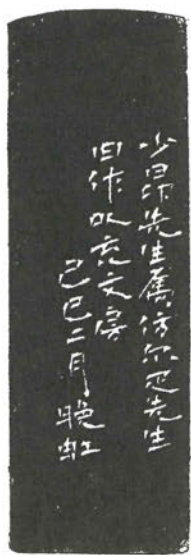 少昂先生属仿尔疋先生
旧作以充文房
己巳二月晚虹